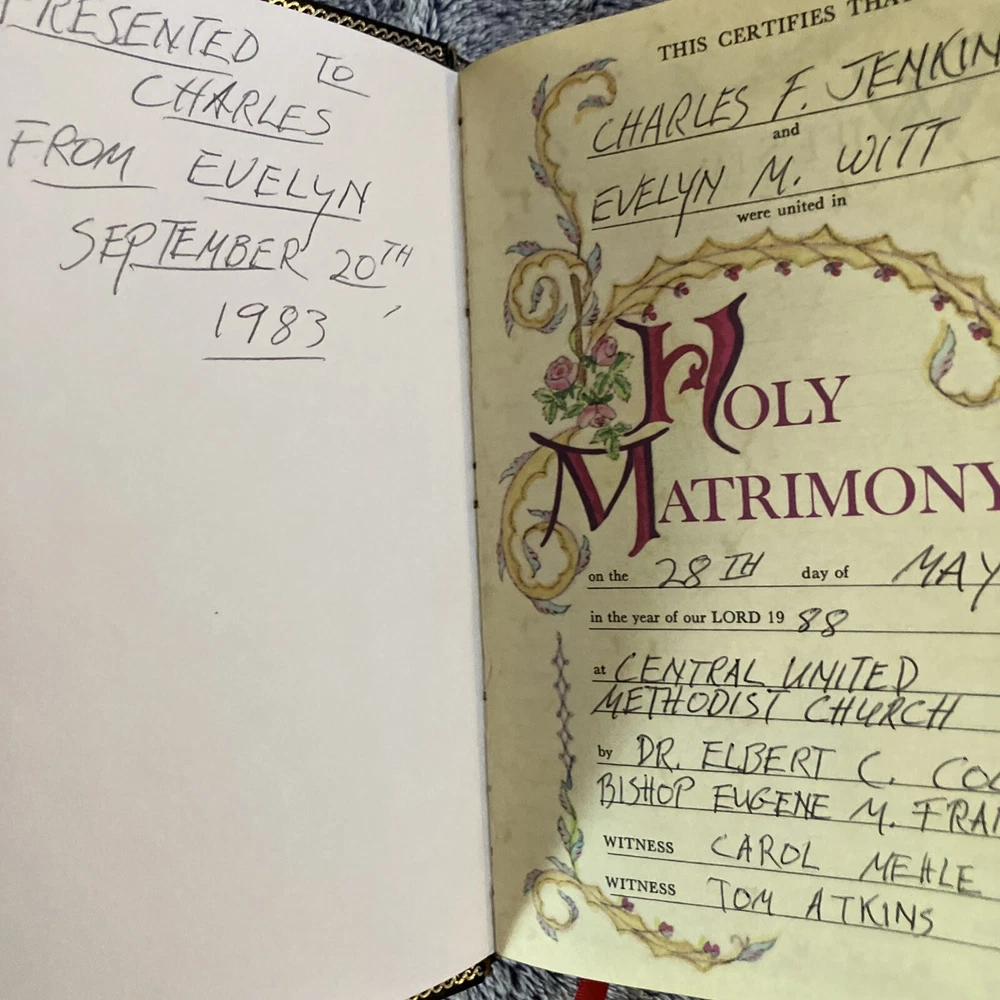 PRESENTED TO
CHARLES
FROM EVELYN
SEPTEMBER 20TH
1983
THIS CERTIFIES THA
CHARLES F. JENKIN
and
EVELYN M. WITT
were united in
HOLY
MATRIMONY
on the 28TH day of MAY
in the year of our LORD 1988
at CENTRAL UNITED
METHODIST CHURCH
by DR. ELBERT C. CO
BISHOP EUGENE M. FRA
WITNESS CAROL MEHLE
WITNESS TOM ATKINS